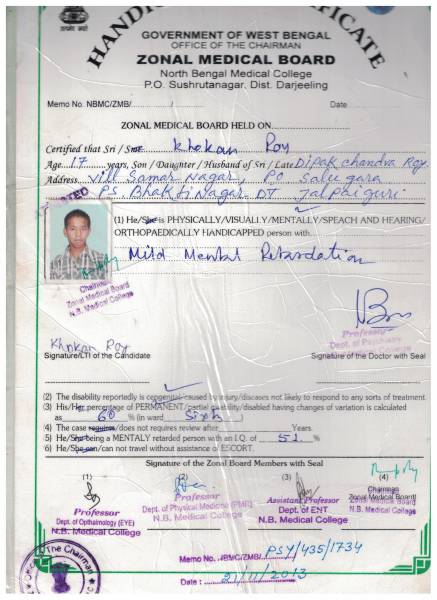 HANDICAPPED CERTIFICATE
GOVERNMENT OF WEST BENGAL
OFFICE OF THE CHAIRMAN
ZONAL MEDICAL BOARD
North Bengal Medical College
P.O. Sushrutanagar, Dist. Darjeeling
Memo No. NBMC/ZMB/............/............ Date
ZONAL MEDICAL BOARD HELD ON
Certified that Sri / Smt Khokan Roy
Age 17 years, Son / Daughter / Husband of Sri / Late Dipak chandra Roy.
Address Vill Samar Nagar, PO Salugara
PS Bhakti Nagar DT Jalpaiguri
(1) He/She is PHYSICALLY/VISUALLY/MENTALLY/SPEACH AND HEARING/
ORTHOPAEDICALLY HANDICAPPED person with
Mild Mental Retardation
Chairman
Zonal Medical Board
N.B. Medical College
Khokan Roy
Professor
Dept. of Psychiatry
Signature/LTI of the Candidate Signature of the Doctor with Seal
(2) The disability reportedly is congenital/caused by injury/diseases not likely to respond to any sorts of treatment.
(3) His/Her percentage of PERMANENT/partial disability/disabled having changes of variation is calculated
as 60 % (in ward Sixty
(4) The case requires/does not requires review after Years.
(5) He/She being a MENTALY retarded person with an I.Q. of 52 %
(6) He/She can/can not travel without assistance of ESCORT.
Signature of the Zonal Board Members with Seal
(1) (2) (3) (4)
Professor
Dept. of Opthalmology (EYE)
N.B. Medical College
Professor
Dept. of Physical Medicine (PMR)
N.B. Medical College
Assistant Professor
Dept. of ENT
N.B. Medical College
Chairman
Zonal Medical Board
N.B. Medical College
The Chairman
Memo No. NBMC/ZMB/ PSY/435/1734
Date : 21/11/2013